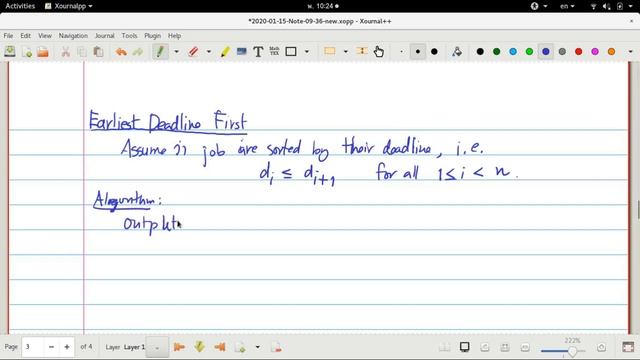 Activities Xournalpp w. 10:24 en
*2020-01-15-Note-09-36-new.xopp - Xournal++
File Edit View Navigation Journal Tools Plugin Help
Earliest Deadline First
Assume job are sorted by their deadline, i.e.
di ≤ di+1 for all 1 ≤ i < n.
Algorithm:
output
Page 3 of 4 Layer Layer 1 222%